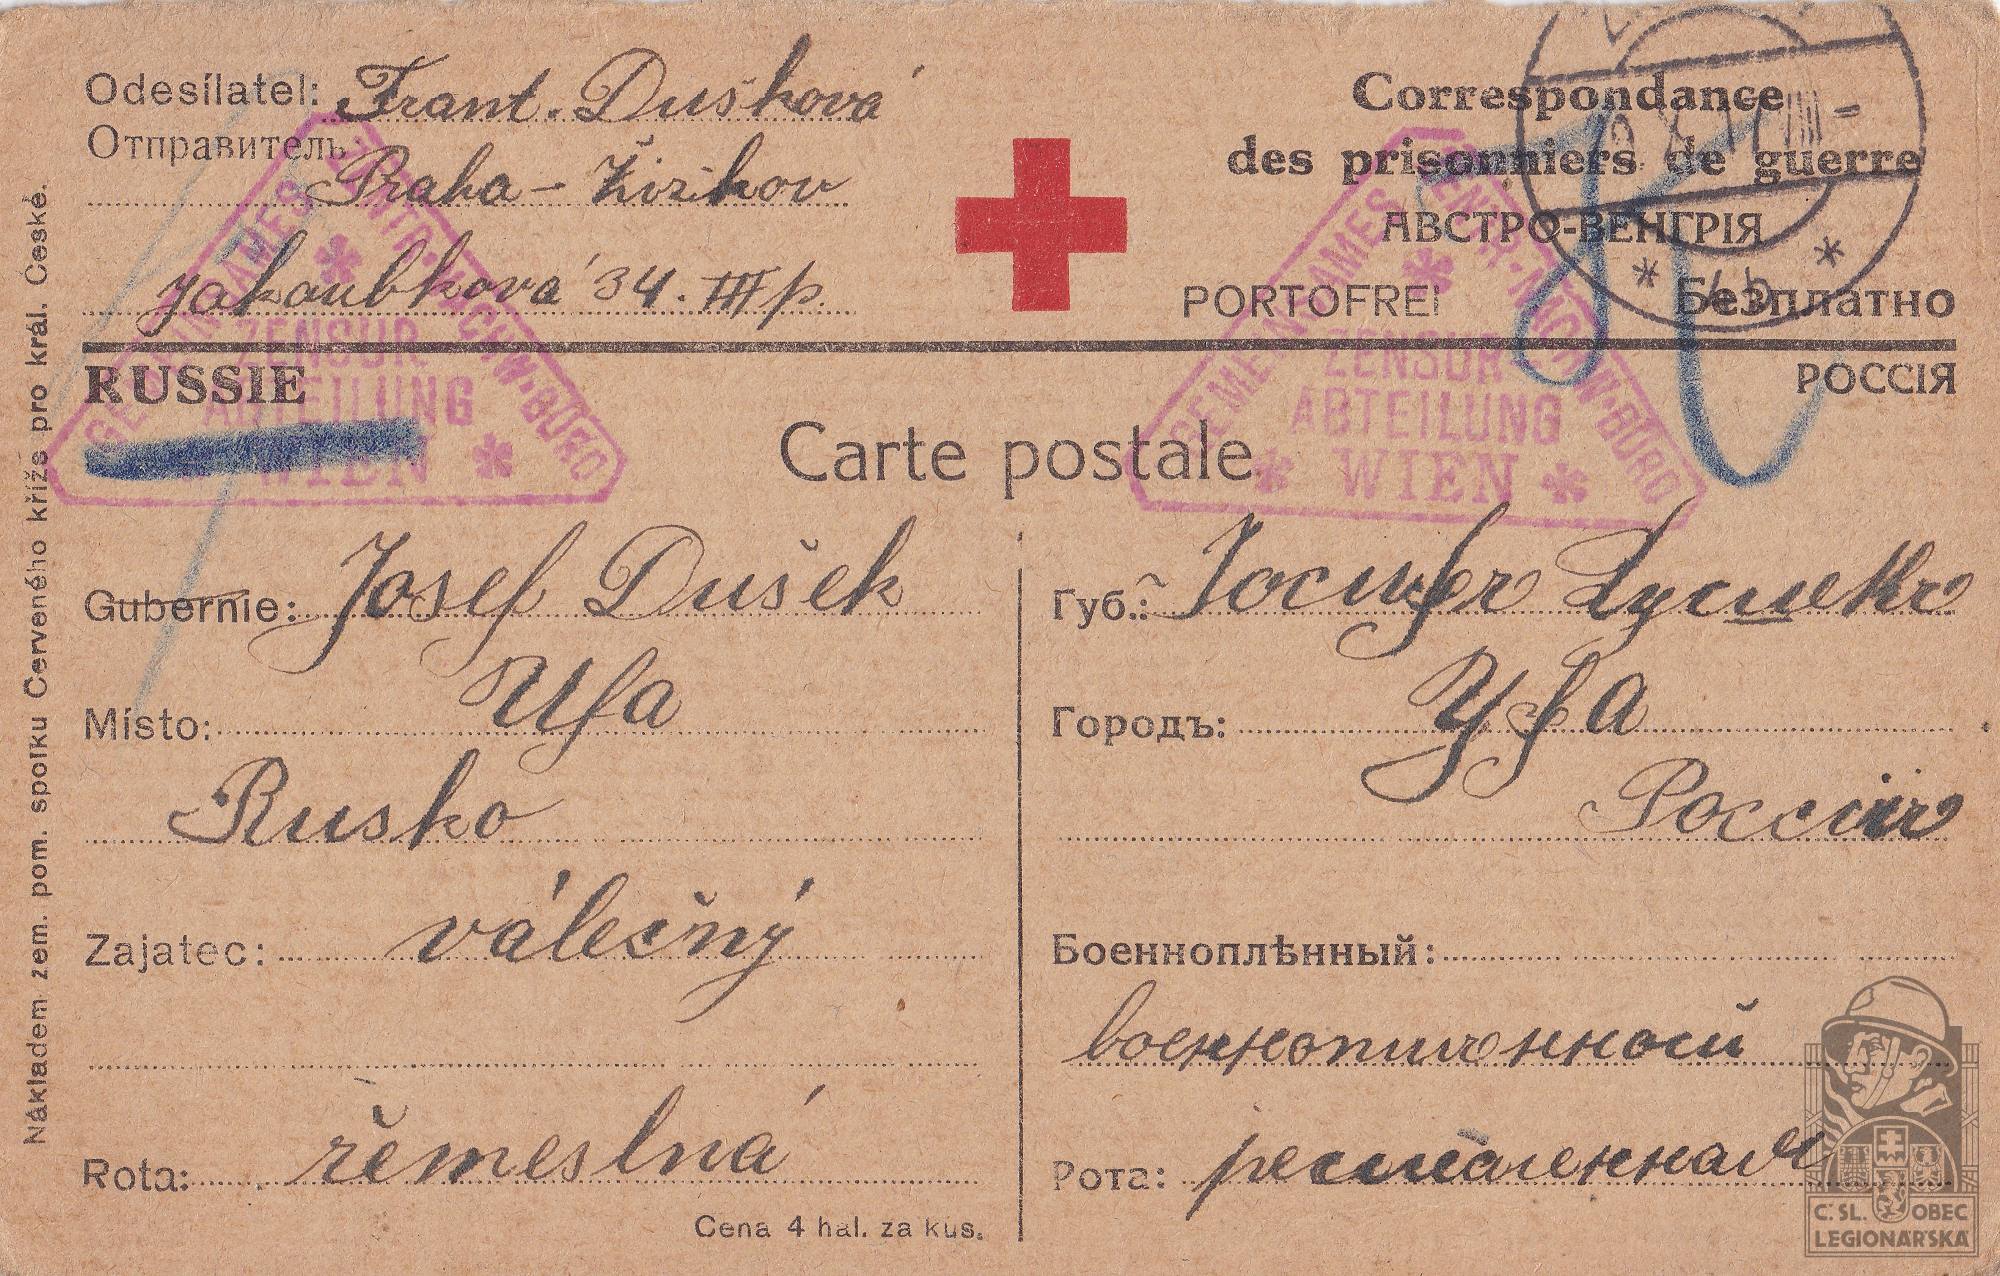 Odesílatel: Frant. Dušková
Отправитель:
Praha - Žižkov
Jakoubkova 34. III p.
Correspondance
des prisonniers de guerre
АВСТРО-ВЕНГРІЯ
PORTOFREI
Безплатно
RUSSIE
РОССІЯ
Carte postale
GEMEINSAMES ZENTR. NACHW. BURO
ZENSUR
ABTEILUNG
WIEN
GEMEINSAMES ZENTR. NACHW. BURO
ZENSUR
ABTEILUNG
WIEN
Gubernie: Josef Dušek
Místo: Ufa
Rusko
Zajatec: válečný
Rota: řemeslná
Cena 4 hal. za kus.
Губ.:
Городъ: Уfа
Россия
Боенноплѣнный:
Рота:
Nákladem zem. pom. spolku Červeného kříže pro král. České.
Č. SL. OBEC
LEGIONÁŘSKÁ